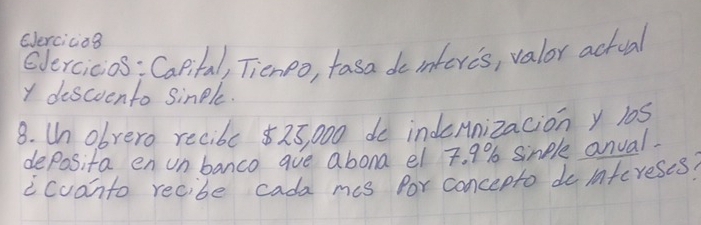 Ejercicio8
Ejercicios: Capital, Tienpo, tasa de interés, valor actual
y descuento sinple.
8. Un obrero recibe $25,000 de indemnización y los
deposita en un banco que abona el 7.9% sinple anual.
¿cuánto recibe cada mes por concepto de intereses?